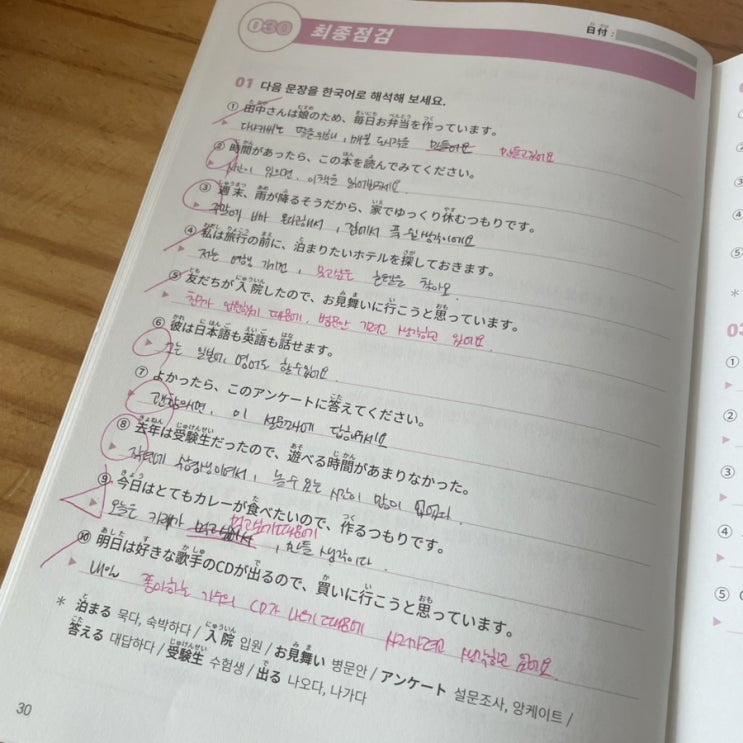 030 최종점검
日付:
01 다음 문장을 한국어로 해석해 보세요.
① 田中さんは娘のため、毎日お弁当を作っています。
만들고있어요
② 時間があったら、この本を読んでみてください。
시간이 있으면, 이책을 읽어봐주세요
③ 週末、雨が降るそうだから、家でゆっくり休むつもりです。
주말에 비가 온다고해서, 집에서 푹 쉴 생각이에요
④ 私は旅行の前に、泊まりたいホテルを探しておきます。
저는 여행 가기전, 묵고싶은 호텔을 찾아요
⑤ 友だちが入院したので、お見舞いに行こうと思っています。
친구가 입원했기 때문에, 병문안 가려고 생각하고 있어요
⑥ 彼は日本語も英語も話せます。
그는 일본어, 영어도 할수있어요
⑦ よかったら、このアンケートに答えてください。
괜찮으시면, 이 설문조사에 답해주세요
⑧ 去年は受験生だったので、遊べる時間があまりなかった。
작년에 수험생이여서, 놀수있는 시간이 많이 없었다
⑨ 今日はとてもカレーが食べたいので、作るつもりです。
먹고싶기때문에
오늘은 카레가 , 만들 생각이다.
⑩ 明日は好きな歌手のCDが出るので、買いに行こうと思っています。
내일 좋아하는 가수의 CD가 나오기 때문에 사러가려고 생각하고 있어요
* 泊まる 묵다, 숙박하다 / 入院 입원 / お見舞い 병문안 / アンケート 설문조사, 앙케이트 /
答える 대답하다 / 受験生 수험생 / 出る 나오다, 나가다
30